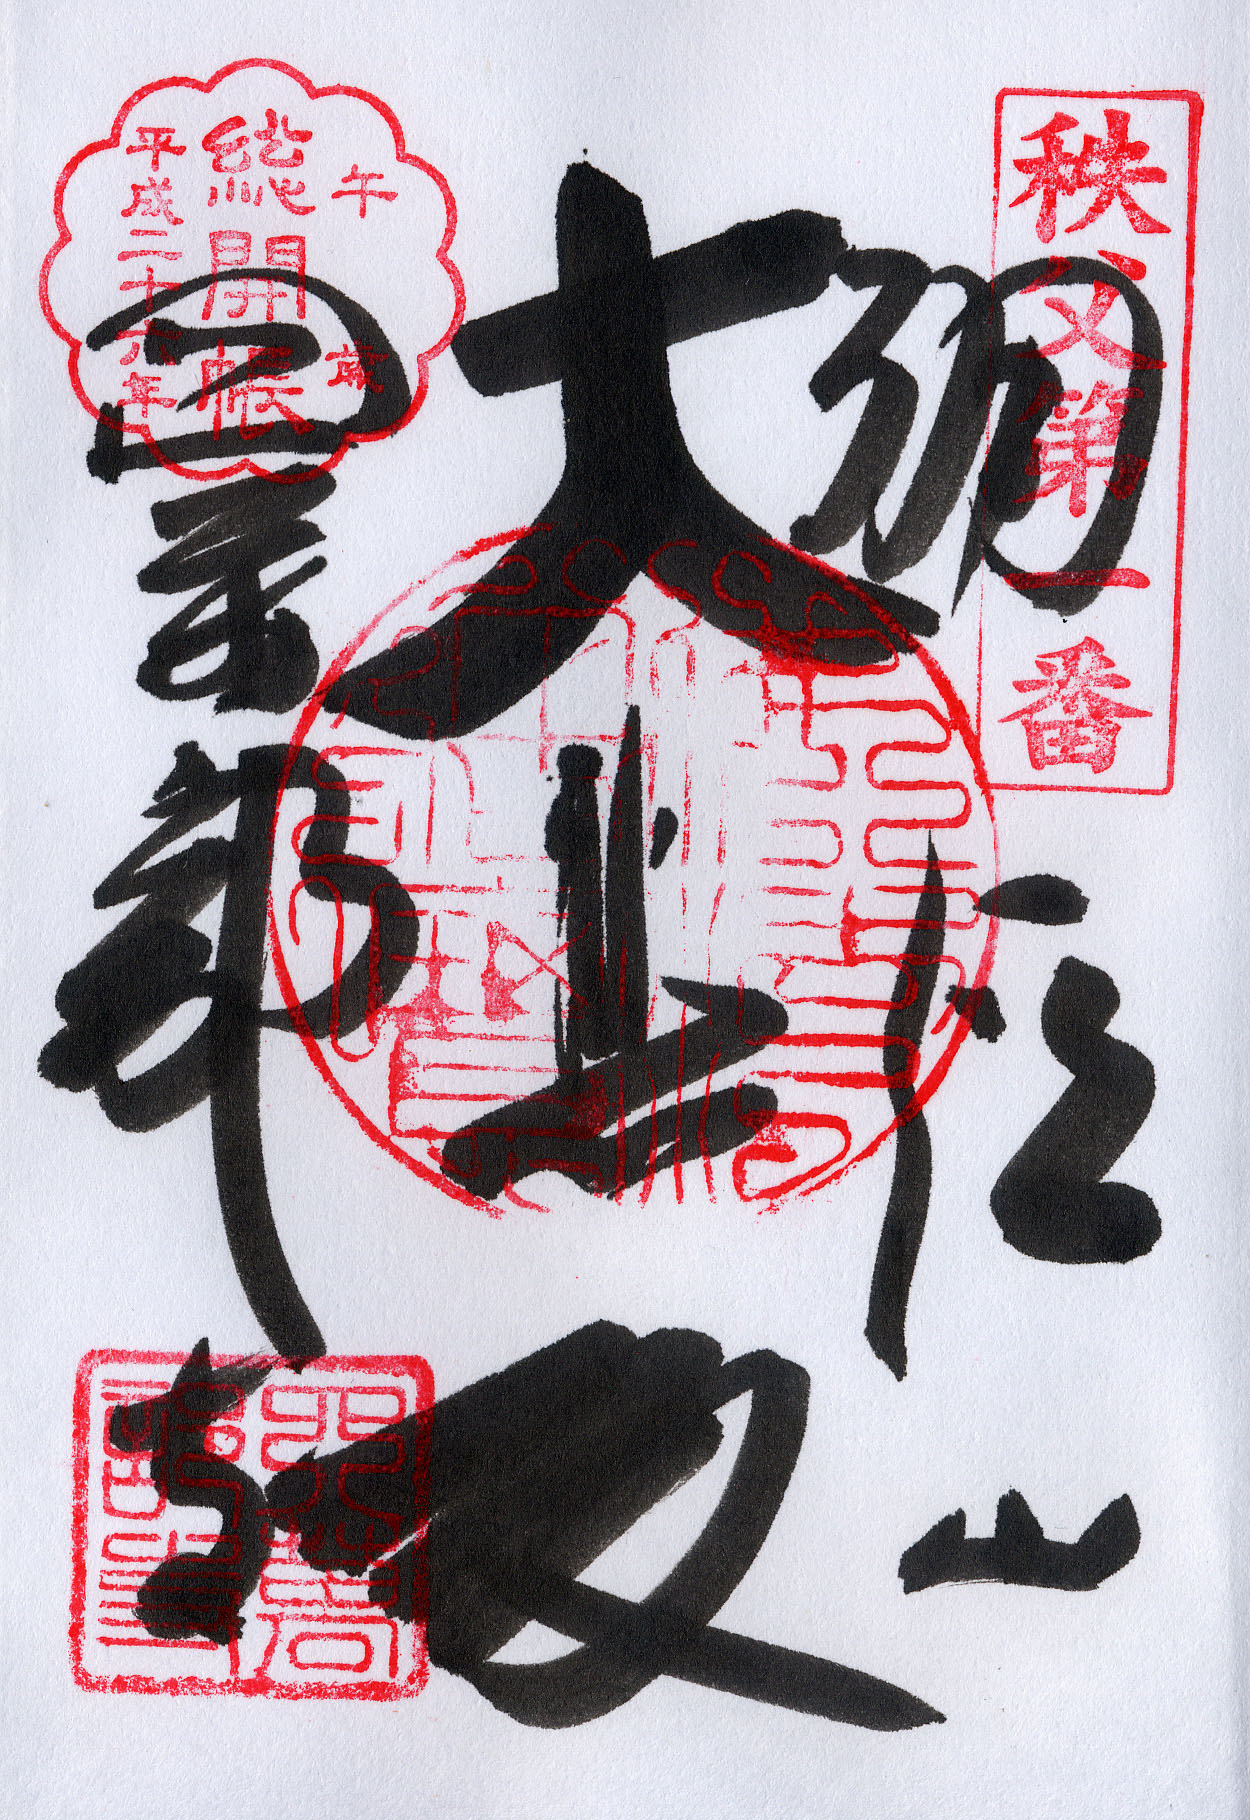 秩父第一番
誦経山
大悲殿
午歳
総開帳
平成二十六年
四萬部寺